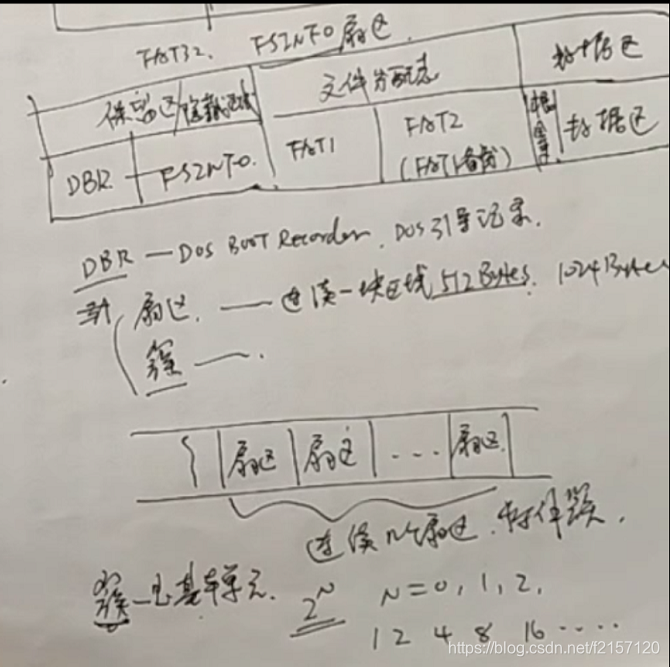 FAT32. FSINFO扇区
保留区/隐藏区域 文件分配表 数据区
DBR FSINFO. FAT1 FAT2 根目录 数据区
(FAT1备份)
DBR — DOS BOOT Recorder. DOS引导记录.
扇区. — 连续一块区域 512Bytes. 1024Bytes
簇 —.
扇区 扇区 ... 扇区
连续n个扇区.
簇 — 基本单元. 2^N N=0, 1, 2,
1 2 4 8 16 ....
https://blog.csdn.net/f2157120